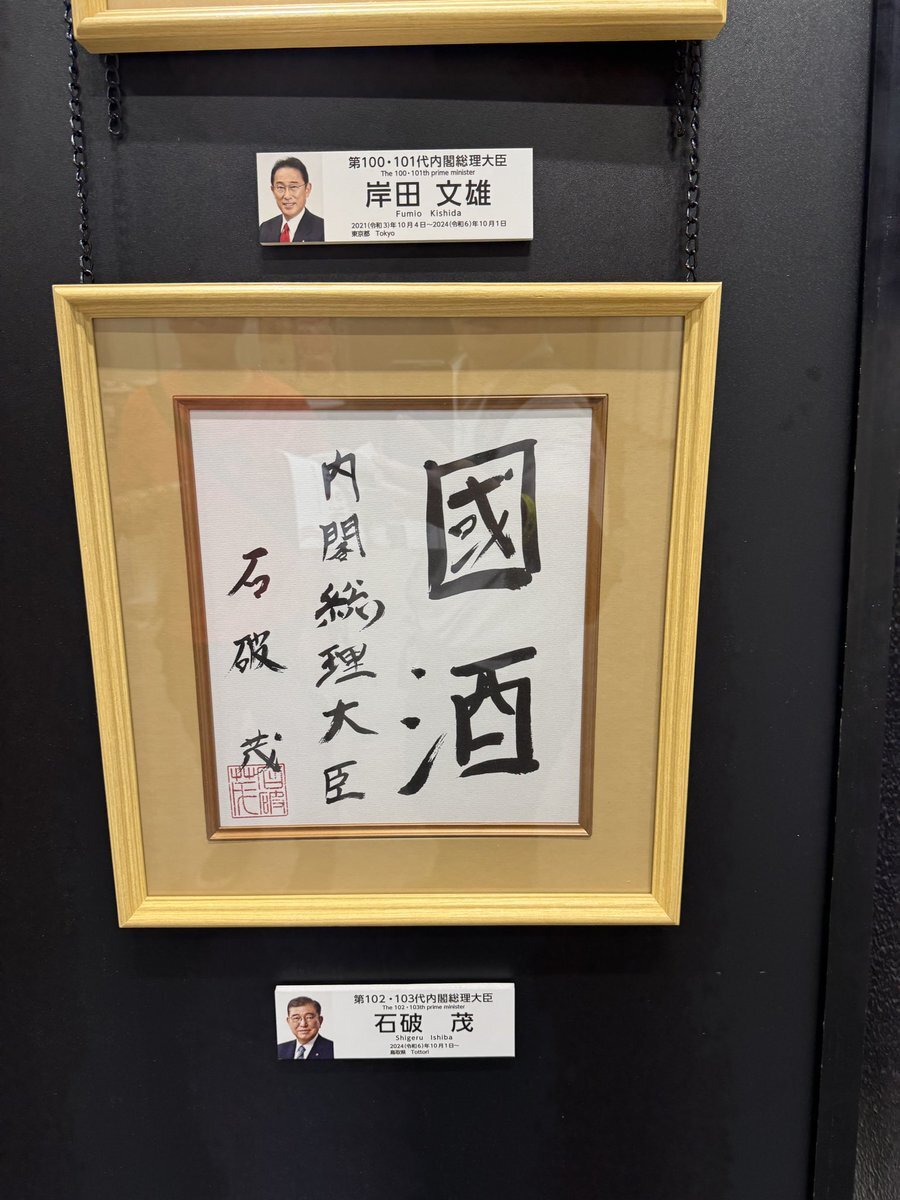 第100・101代内閣総理大臣
The 100・101th prime minister
岸田 文雄
Fumio Kishida
2021(令和3)年10月4日～2024(令和6)年10月1日
東京都 Tokyo
國酒
内閣総理大臣
石破 茂
石破茂
第102・103代内閣総理大臣
The 102・103th prime minister
石破 茂
Shigeru Ishiba
2024(令和6)年10月1日～
鳥取県 Tottori